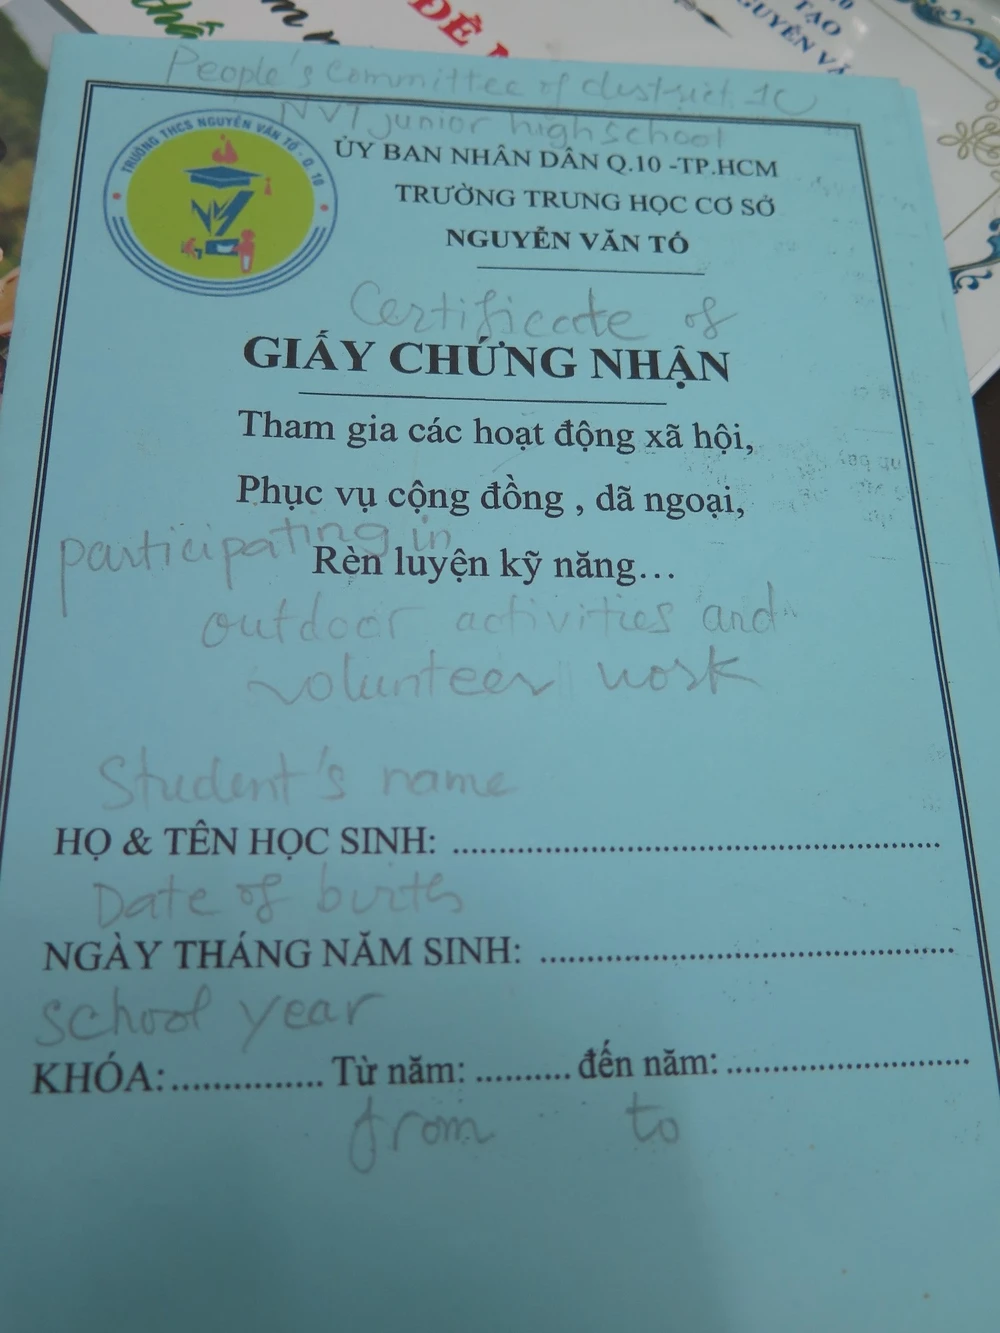 ĐỀ
TẠO
People's Committee of district 10
NVT junior high school
TRƯỜNG THCS NGUYỄN VĂN TỐ - Q. 10
ỦY BAN NHÂN DÂN Q.10 -TP.HCM
TRƯỜNG TRUNG HỌC CƠ SỞ
NGUYỄN VĂN TỐ
Certificate of
GIẤY CHỨNG NHẬN
Tham gia các hoạt động xã hội,
Phục vụ cộng đồng , dã ngoại,
participating in
Rèn luyện kỹ năng...
outdoor activities and
volunteer work
Student's name
HỌ & TÊN HỌC SINH: ................................................
Date of birth
NGÀY THÁNG NĂM SINH: ........................................
school year
KHÓA:............... Từ năm: .......... đến năm: ........................
from to